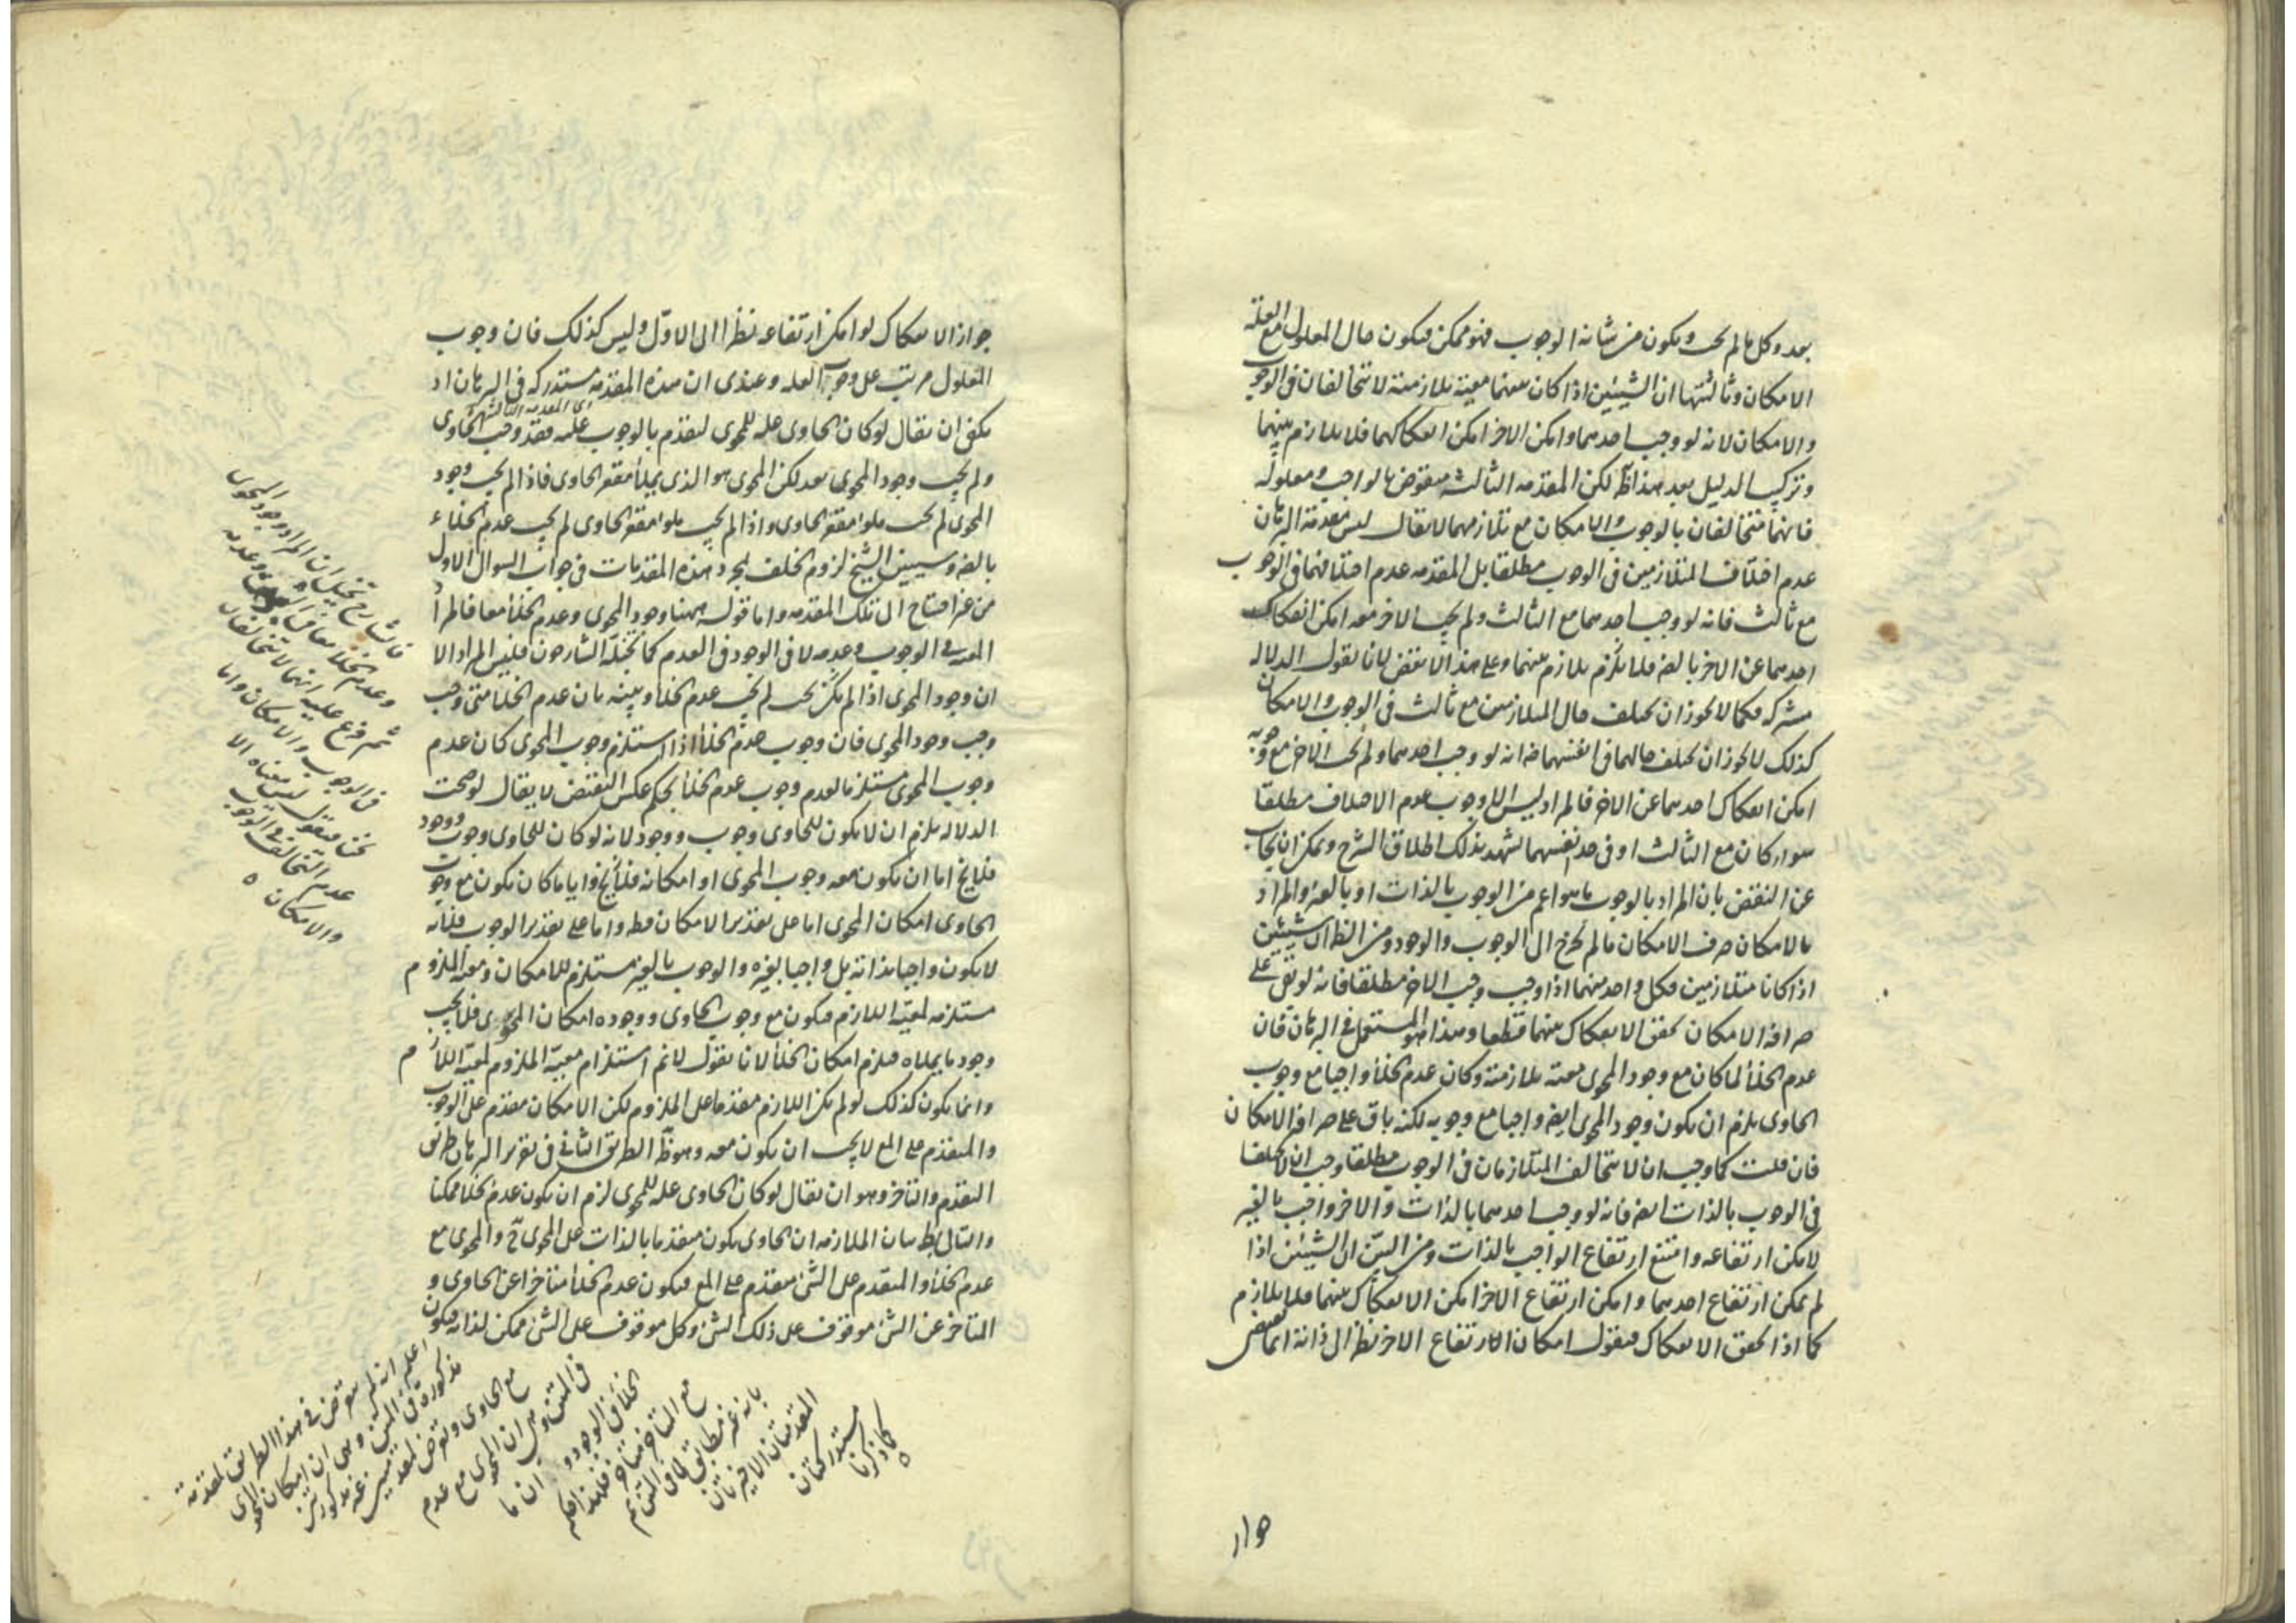 بعد وكل ما لم يجب ويكون من شانه الوجوب فهو ممكن فيكون حال المعلول مع العلة
الامكان وثالثتها ان الشيئين اذا كان بينهما معية تلازمية لا يتخالفان في الوجوب
والامكان لانه لو وجب احدهما وامكن الاخر امكن انفكاكهما فلا تلازم بينهما
وتركيب الدليل بعد هذا ظ لكن المقدمه الثالثه منقوض بالواجب ومعلوله
فانهما متخالفان بالوجوب والامكان مع تلازمهما لا يقال ليس مقدمة البرهان
عدم اختلاف المتلازمين في الوجوب مطلقا بل المقدمه عدم اختلافهما في الوجوب
مع ثالث فانه لو وجب احدهما مع الثالث ولم يجب الاخر معه امكن انفكاك
احدهما عن الاخر بالضرفلا يلزم تلازم بينهما وعلى هذا لا نقض لانا نقول الدلاله
مشتركه فكما لا يجوز ان يختلف حال المتلازمين مع ثالث في الوجوب والامكان
كذلك لا يجوز ان يختلف حالهما في انفسهما ضرانه لو وجب احدهما ولم يجب الاخر مع وجوبه
امكن انفكاك احدهما عن الاخر فالمراد ليس الا وجوب عدم الاختلاف مطلقا
سواء كان مع الثالث او في حد انفسهما يشهد بذلك اطلاق الشرح ويمكن ان يجاب
عن النقض بان المراد بالوجوب ما هو اعم من الوجوب بالذات او بالغير والمراد
بالامكان صرف الامكان ما لم يخرج الى الوجوب والوجود ومن الظ ان الشيئين
اذا كانا متلازمين فكل واحد منهما اذا وجب وجب الاخر مطلقا فانه لو بقي على
صرافه الامكان تحقق الانفكاك بينهما قطعا وهذا هو المستعمل في البرهان فان
عدم الخلأ لما كان مع وجود المحوى معية تلازمية وكان عدم الخلأ واجبا مع وجوب
الحاوى يلزم ان يكون وجود المحوى ايض واجبا مع وجوبه لكنه باق على صرافه الامكان
فان قلت كما وجب ان لا يتخالف المتلازمان في الوجوب مطلقا وجب ان لا يختلفا
في الوجوب بالذات ايض فانه لو وجب احدهما بالذات والاخر واجب بالغير
لامكن ارتفاعه وامتنع ارتفاع الواجب بالذات ومن البين ان الشيئين اذا
لم يمكن ارتفاع احدهما وامكن ارتفاع الاخر امكن الانفكاك بينهما فلا تلازم
كما اذا تحقق الانفكاك فنقول امكان الارتفاع الاخر نظرا الى ذاته انما يقتضى
جواز الانفكاك لو امكن ارتفاعه نظرا الى الاول وليس كذلك فان وجوب
المعلول مرتب على وجوب العله وعندى ان هذه المقدمه مستدركه في البرهان اذ
اى المقدمه الثالثه
يكفى ان يقال لو كان الحاوى عله للمحوى لتقدم بالوجوب عليه فقد وجب الحاوى
ولم يجب وجود المحوى بعد لكن المحوى هو الذى يملأ مقعر الحاوى فاذا لم يجب وجود
المحوى لم يجب ملو مقعر الحاوى واذا لم يجب ملو مقعر الحاوى لم يجب عدم الخلاء
بالضر وسيبين الشيخ لزوم الخلف بمجرد هذه المقدمات في جواب السوال الاول
من غير احتياج الى تلك المقدمه واما قوله ههنا وجود المحوى وعدم الخلأ معا فالمراد
المعية في الوجوب وعدمه لا في الوجود في العدم كما تخيله الشارحون فليس المراد الا
ان وجود المحوى اذا لم يكن يجب لم يجب عدم الخلأ وبينه بان عدم الخلأ متى وجب
وجب وجود المحوى فان وجوب عدم الخلأ اذا استلزم وجوب المحوى كان عدم
وجوب المحوى مستلزما لعدم وجوب عدم الخلأ بحكم عكس النقيض لا يقال لو صحت
الدلاله يلزم ان لا يكون للحاوى وجوب ووجود لانه لو كان للحاوى وجوب ووجود
فلا يخ اما ان يكون معه وجوب المحوى او امكانه فلا يخ وايا ما كان يكون مع وجوب
الحاوى امكان المحوى اما على تقدير الامكان فظ واما على تقدير الوجوب فلانه
لا يكون واجبا بذاته بل واجبا بغيره والوجوب بالغير مستلزم للامكان ومعية الملزوم
مستلزمه لمعية اللازم فيكون مع وجوب الحاوى ووجوده امكان المحوى فلا يجب
وجود ما يملاه فيلزم امكان الخلأ لانا نقول لا نم استلزام معية الملزوم لمعية اللازم
وانما يكون كذلك لو لم يكن اللازم مقدما على الملزوم لكن الامكان مقدم على الوجوب
والمتقدم على المع لا يجب ان يكون معه وهو ظ الطريق الثانى في تقرير البرهان طريق
التقدم والتاخر وهو ان يقال لو كان الحاوى عله للمحوى لزم ان يكون عدم الخلأ ممكنا
والتالى بط بيان الملازمه ان الحاوى يكون متقدما بالذات على المحوى ح والمحوى مع
عدم الخلأ والمتقدم على الشئ متقدم على المع فيكون عدم الخلأ متاخرا عن الحاوى و
المتاخر عن الشئ موقوف على ذلك الشئ وكل موقوف على الشئ ممكن لذاته فيكون
تخيل ان المراد وجود المحوى
وعدم الخلأ معا في
ثم فرع عليه انهما لا يتخالفان
في الوجوب والامكان واما
نحن فنقول ليس معناه الا
عدم التخالف في الوجوب
والامكان
اعلم انه لم يتعرض في هذا الطريق لمقدمة
مذكورة في المتن وهى ان امكان المحوى
مع الحاوى وتعرض لمقدمتين غير مذكورتين
في المتن وهى ان المحوى مع عدم
الخلأ في الوجود و ان ما
مع المتاخر متاخر فلهذا حكم
بانه غير مطابق لما في المتن ثم
المقدمتان الاخيرتان
مستدركتان
كما ذكرنا
جواز